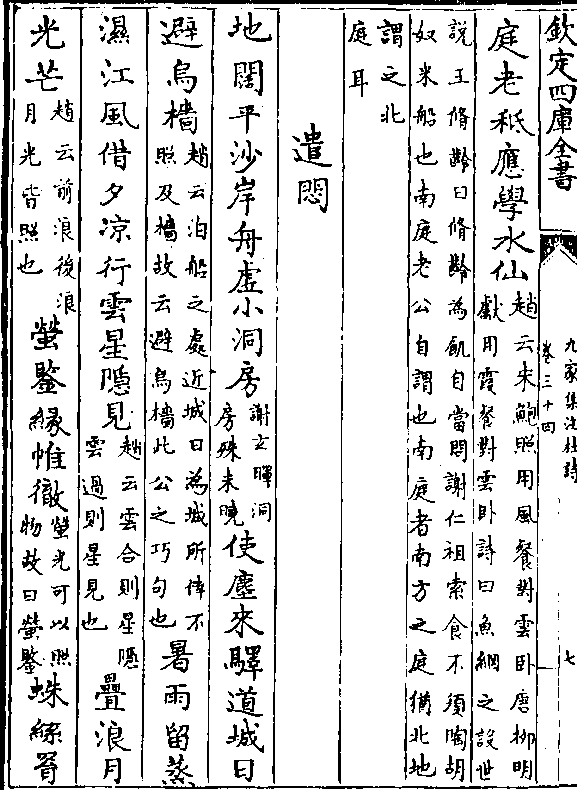 欽定四庫全書
九家集注杜詩
卷三十四
七
庭老秪應學水仙
趙云朱鮑照用風餐對雲卧唐柳明
獻用霞餐對雲卧詩曰魚網之設世
說王脩齡曰脩齡為飢自當問謝仁祖索食不須陶胡
奴米船也南庭老公自謂也南庭者南方之庭猶北地
謂之北
庭耳
遣悶
地闊平沙岸舟虛小洞房
謝玄暉洞
房殊未曉
使塵來驛道城日
避烏檣
趙云泊船之處近城日為城所偉不
照及檣故云避烏檣此公之巧句也
暑雨留蒸
濕江風借夕涼行雲星隱見
趙云雲合則星隱
雲過則星見也
疊浪月
光芒
趙云前浪後浪
月光皆照也
螢鑒緣帷徹
螢光可以照
物故曰螢鑒
蛛絲罥